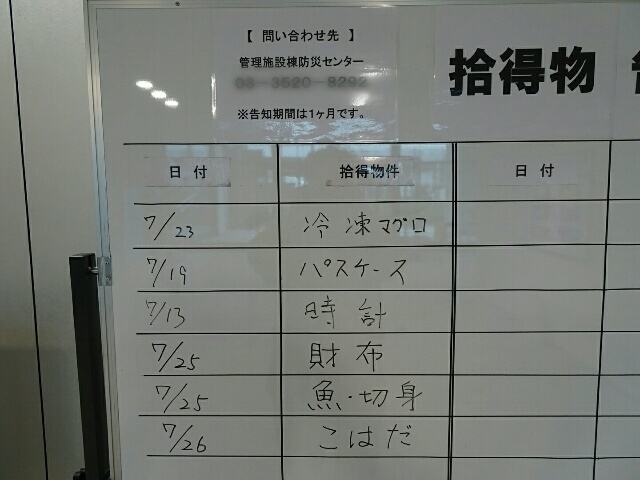 【 問い合わせ先 】
管理施設棟防災センター
03-3520-8292
※告知期間は1ヶ月です。
拾得物
日付 拾得物件 日付
7/23 冷凍マグロ
7/19 パスケース
7/13 時計
7/25 財布
7/25 魚・切身
7/26 こはだ